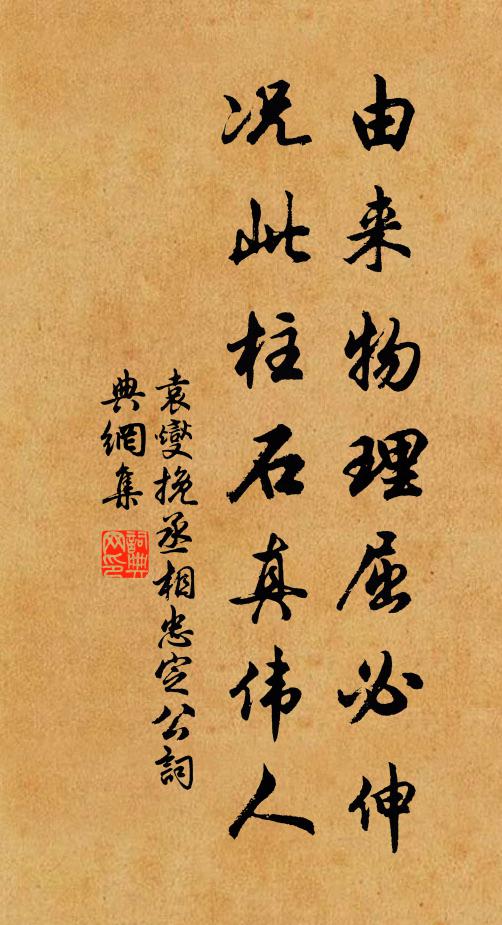 由来物理屈必伸
况此柱石真伟人
袁燮挽丞相忠定公词
典網集
詞典網印